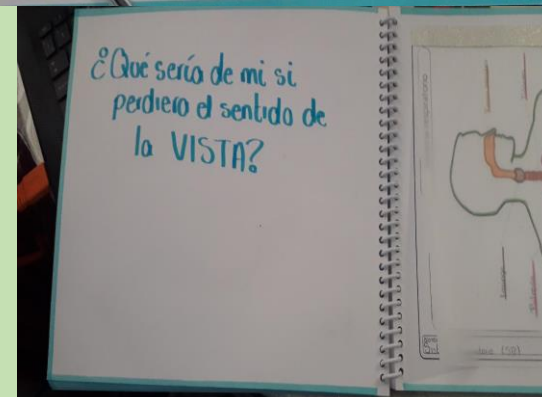 ¿Qué sería de mi si
perdiera el sentido de
la VISTA?